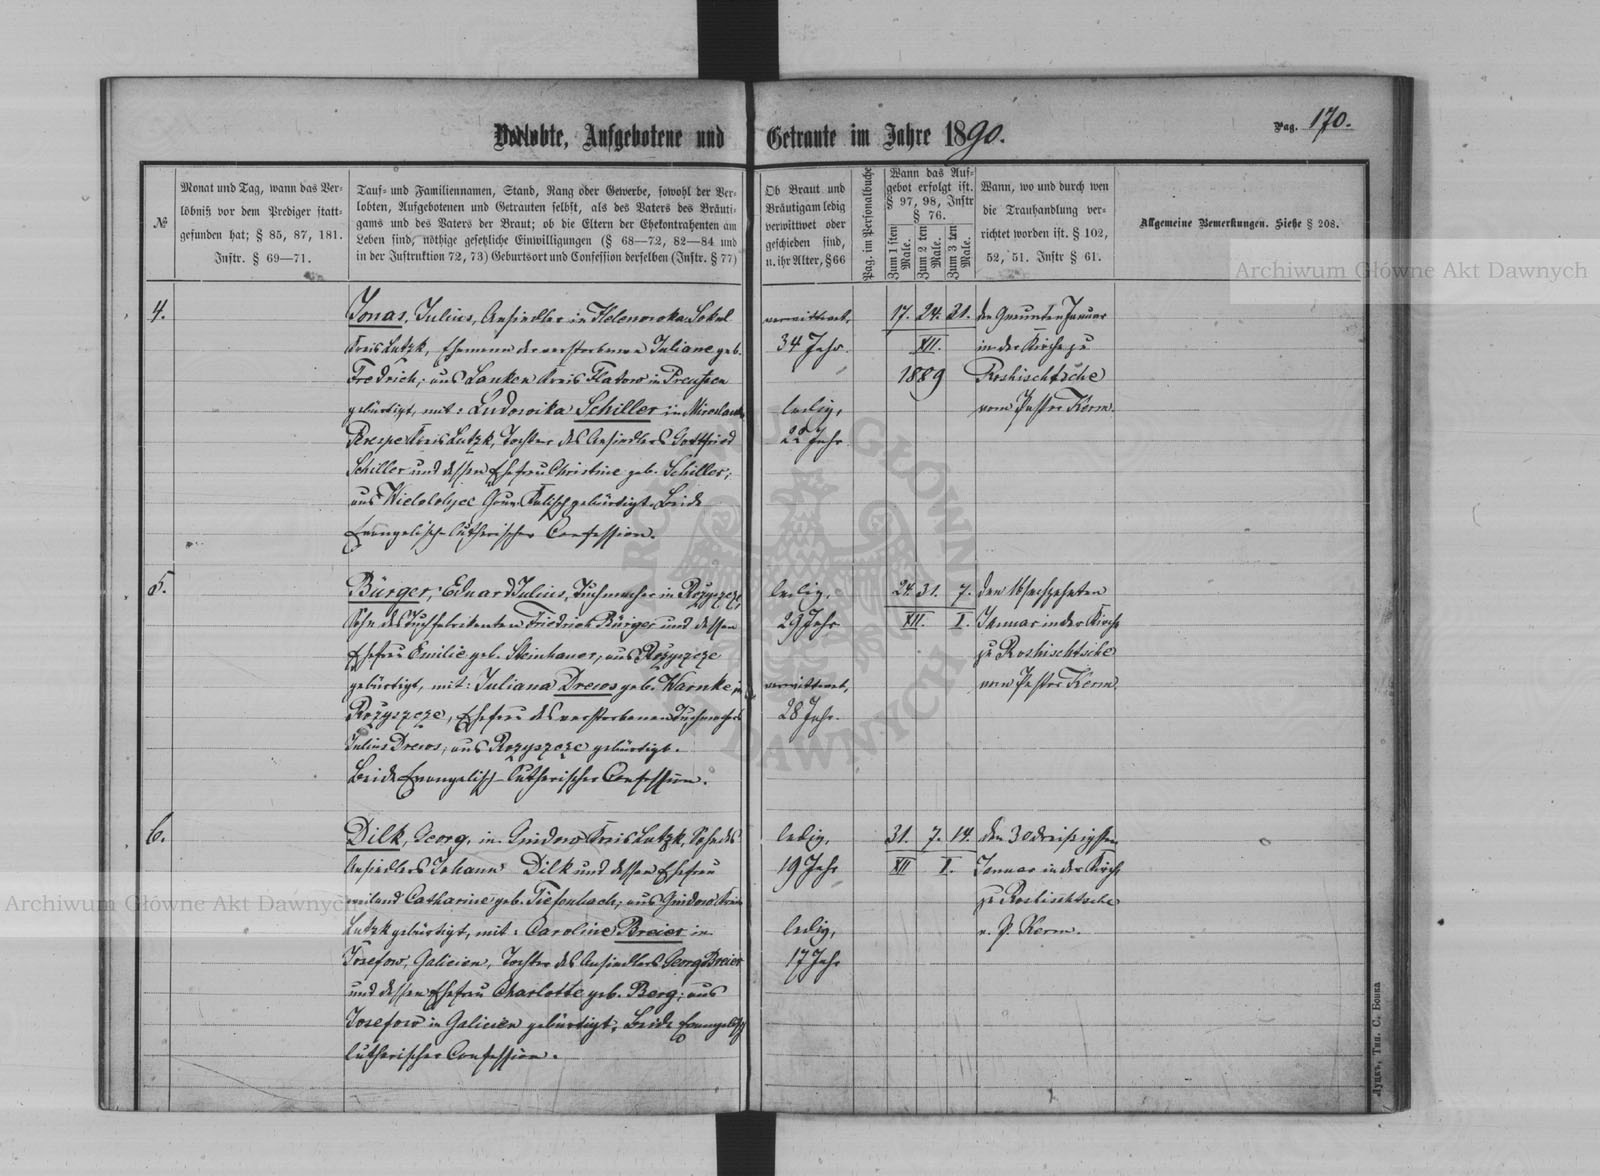 Verlobte, Aufgebotene und Getraute im Jahre 1890.
Pag. 170.
№
Monat und Tag, wann das Ver-
löbniß vor dem Prediger statt-
gefunden hat; § 85, 87, 181.
Instr. § 69—71.
Tauf- und Familiennamen, Stand, Rang oder Gewerbe, sowohl der Ver-
lobten, Aufgebotenen und Getrauten selbst, als des Vaters des Bräuti-
gams und des Vaters der Braut; ob die Eltern der Ehekontrahenten am
Leben sind, nöthige gesetzliche Einwilligungen (§ 68—72, 82—84 und
in der Instruktion 72, 73) Geburtsort und Confession derselben (Instr. § 77)
Ob Braut und
Bräutigam ledig
verwittwet oder
geschieden sind,
u. ihr Alter, § 66
Pag. im Personalbuche
Wann das Auf-
gebot erfolgt ist.
§ 97, 98, Instr
§ 76.
Zum 1 sten Male.
Zum 2 ten Male.
Zum 3 ten Male.
Wann, wo und durch wen
die Trauhandlung ver-
richtet worden ist. § 102,
52, 51. Instr § 61.
Allgemeine Bemerkungen. Siehe § 208.
4.
Jonas, Julius, Ansiedler in Helenowka Sokul
Kreis Lutzk, Ehemann der verstorbenen Juliane geb.
Fredrich; aus Lanken Kreis Flatow in Preußen
gebürtigt, mit: Ludowika Schiller in
Perespe Kreis Lutzk, Tochter des Ansiedlers Gottfried
Schiller und dessen Ehefrau Christine geb. Schiller;
aus Gouv. Kalisch gebürtigt. Beide
Evangelisch-lutherischer Confession.
verwittwet,
34 Jahr.
ledig,
22 Jahr
17. 24. 31.
XII.
1889
den Neunten Januar
in der Kirche zu
Roshischtsche
vom Pastor Kerm.
5.
Bürger, Eduard Julius, Tuchmacher in Rożyszcze
Sohn des Tuchfabrikanten Friedrich Bürger und dessen
Ehefrau Emilie geb. Steinhauer, aus Rożyszcze
gebürtigt, mit: Juliana Drews geb. Warnke in
Rożyszcze, Ehefrau des verstorbenen Tuchmachers
Julius Drews, aus Rożyszcze gebürtigt.
Beide Evangelisch-lutherischer Confession.
ledig,
29 Jahr
verwittwet,
28 Jahr.
24. 31. 7.
XII. I.
den 16 sechzehnten
Januar in der Kirche
zu Roshischtsche
vom Pastor Kerm.
6.
Dilk, Georg, in Gnidow Kreis Lutzk, Sohn des
Ansiedlers Johann Dilk und dessen Ehefrau
weiland Catharine geb. Tiefenbach, aus Gnidow Kreis
Lutzk gebürtigt, mit: Caroline Breier in
Josefow, Galicien, Tochter des Ansiedlers Georg Breier
und dessen Ehefrau Charlotte geb. Berg; aus
Josefow in Galicien gebürtigt; Beide Evangelisch
lutherischer Confession.
ledig,
19 Jahr
ledig,
17 Jahr
31. 7. 14.
XII I.
den 30 dreißigsten
Januar in der Kirche
zu Roshischtsche
v. P. Kerm.
Луцкъ, Тип. С. Бонка
Archiwum Główne Akt Dawnych
Archiwum Główne Akt Dawnych
ARCHIWUM GŁÓWNE AKT DAWNYCH